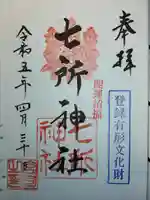 奉拝
登録有形文化財
開運招福
七所神社
令和五年四月三十日